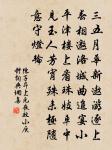 三五月華新遨遊逐上
春相邀洛城曲追宴小
平津樓上看珠妓車中
見玉人芳宵殊未極隨
意守燈輪
陳子昂上元夜效小庾